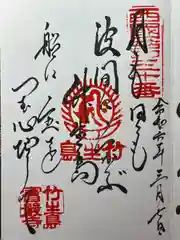 西国三十番
令和六年三月
月も日も
波間に
うかぶ
竹生島
船に
宝を
つむ心地して
竹生島
寶嚴寺